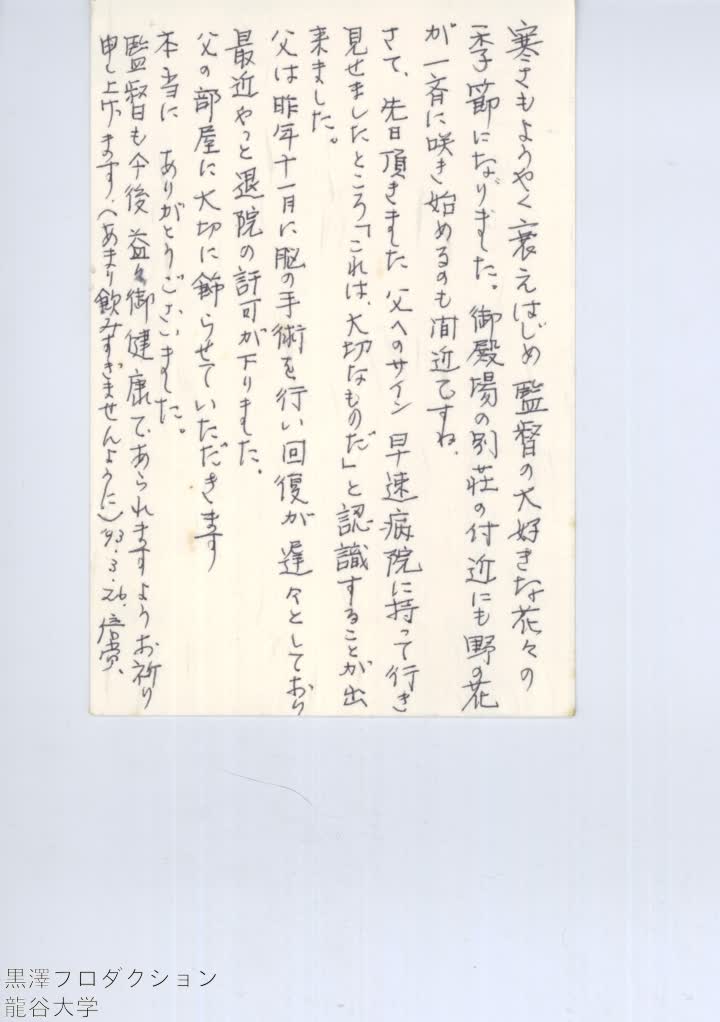 寒さもようやく衰えはじめ 監督の大好きな花々の
季節になりました。御殿場の別荘の付近にも野の花
が一斉に咲き始めるのも間近ですね、
さて、先日頂きました 父へのサイン 早速病院に持って行き
見せましたところ「これは、大切なものだ」と認識することが出
来ました。
父は昨年十一月に脳の手術を行い回復が遅々としており
最近やっと退院の許可が下りました。
父の部屋に大切に飾らせていただきます
本当に ありがとうございました。
監督も今後益々御健康であられますようお祈り
申し上げます、(あまり飲みすぎませんように)'93.3.26.倍賞、
黒澤プロダクション
龍谷大学